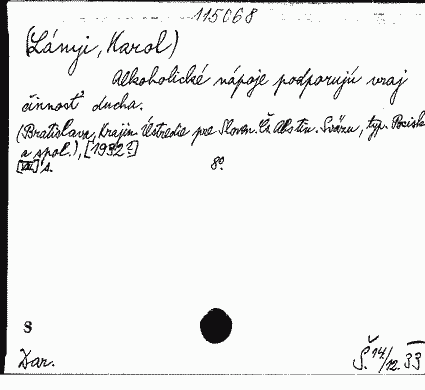 115068
(Lányi, Karol)
Alkoholické nápoje podporujú vraj
činnosť ducha.
(Bratislava, Krajin. Ústredie pre Sloven. Čs. Abstin. Sväzu, typ.
a spol.), [1932?]
s. 8°
S
Dar. Š. 14/12. 33